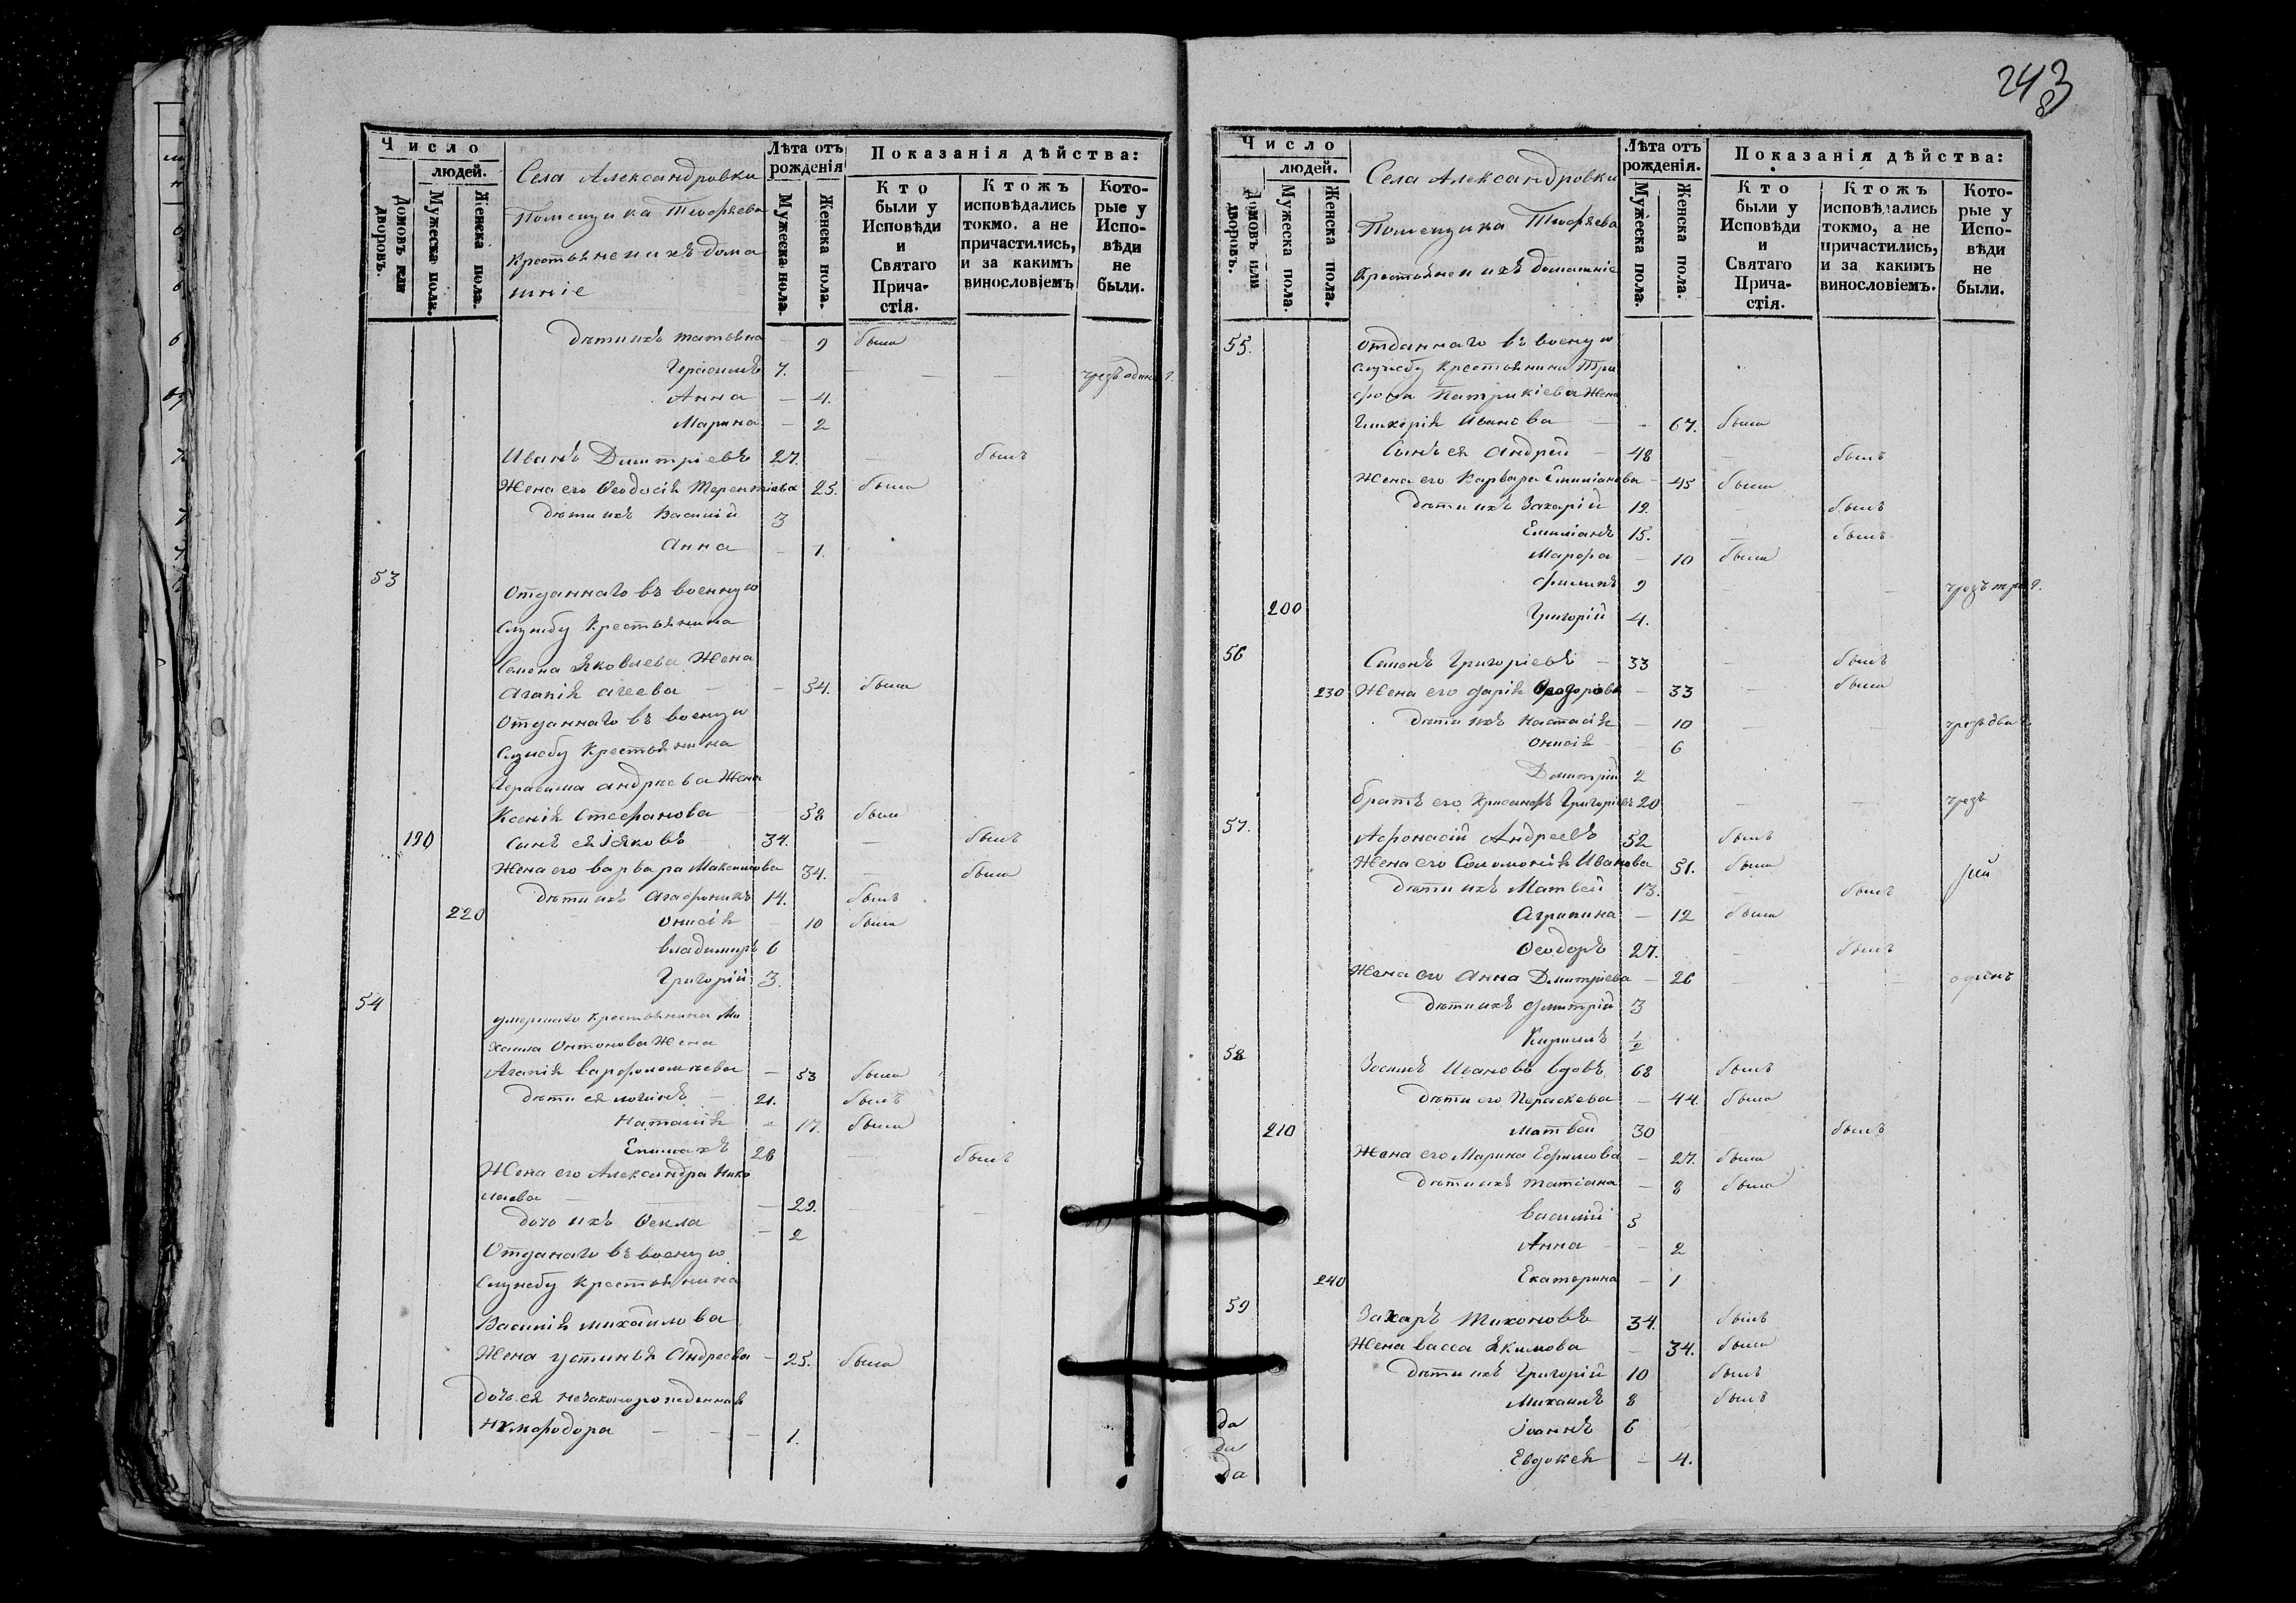 243
Число
людей.
Домовъ или дворовъ.
Мужеска пола.
Женска пола.
Села Александровки
Помещика
Крестьяне и ихъ дома
шніе
Лѣта отъ рожденія
Мужеска пола.
Женска пола.
Показанія дѣйства:
Кто были у Исповѣди и Святаго Прича-
стія.
Ктожъ исповѣдались токмо, а не причастились, и за какимъ винословіемъ
Кото-
рые у Испо-
вѣди не были.
дѣти ихъ — 9 была
Герасимъ 7. — — — чрезъ один г.
Анна — 4.
Марина — 2
Иванъ Димитріевъ 27. — былъ
Жена его Ѳеодосія Терентіева 25. была
дѣти ихъ Василій 3
Анна — 1.
53
Отданнаго въ военную
службу Крестьянина
Семена Яковлева Жена
Агапія Агеева — — 54. была
Отданнаго въ военую
службу Крестьянина
Герасима Андреева Жена
Ксенія Стефанова 58 была
190 Сынъ ея Іяковъ 34. — былъ
Жена его варвара Максимова 34. — была
дѣти ихъ Агафоникъ 14. былъ
220 Онисія — 10 была
владимиръ 6
Григорій 3.
54
умершаго Крестьянина Ми
хаила Онтонова Жена
Агапія варфоломѣева — 53 была
дѣти ея логинъ — 21. былъ
Наталія — 17. была
Епимахъ 28 — былъ
Жена его Александра Нико
лаева — — 29. — —
дочь ихъ Ѳекла — 2
Отданаго въ военую
службу Крестьянина
Василія михаилова
Жена устинья Андреева — 25. была
дочь ея незаконорожденная
— — — 1.
Число
людей.
Домовъ или дворовъ.
Мужеска пола.
Женска пола.
Села Александровки
Помещика
Крестьяне и ихъ домашніе
Лѣта отъ рожденія.
Мужеска пола.
Женска пола.
Показанія дѣйства:
Кто были у Исповѣди и Святаго Прича-
стія.
Ктожъ исповѣдались токмо, а не причастились, и за какимъ винословіемъ.
Кото-
рые у Испо-
вѣди не были.
55. Отданнаго въ военую
службу Крестьянина Три
фона Патрикіева Жена
Гликерія Иванова — - 67. была
Сынъ ея Андрей — 48 — былъ
Жена его Варвара Емиліанова — 45 была
дѣти ихъ Захарій 19. — былъ
Емиліанъ 15. — былъ
Марфа — 10 была
Филипъ 9 — — чрезъ три г.
200 Григорій 4.
56 Семенъ Григоріевъ — 33 — былъ
230 Жена его Дарія Ѳеодорова — 33 — была
дѣти ихъ Настасія — 10 — — чрезъ два г.
Онисія 6
Димитрій 2
братъ его Хрисанфъ Григоріевъ 20 — — чрезъ
57. Афонасій Андреевъ 52 былъ
Жена его Соломонія Иванова 51. была
дѣти ихъ Матвей 13. — былъ
Агрипина — 12 была
Ѳеодоръ 27. — былъ
Жена его Анна Димитріева — 26 — — одинъ
дѣти ихъ Димитрій 3
Кирилъ ½
58 Зосимъ Ивановъ вдовъ 68 былъ
дѣти его Параскева — 44. была
210 Матвей 30 былъ
Жена его Марина Ефимова — 27. была
дѣти ихъ Татіана — 8 была
Василій 5
Анна — — 2
240 Екатерина — 1
59 Захаръ Тихоновъ 34. былъ
Жена васса Якимова — 34. была
дѣти ихъ Григорій 10 былъ
Михаилъ 8 былъ
да Іоаннъ 6
да
да Евдокея — 4.